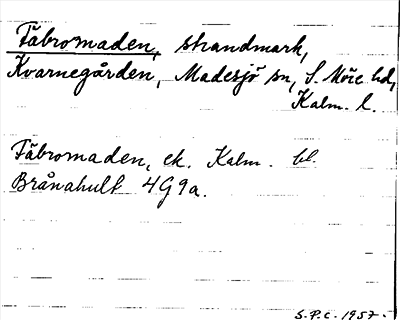 Fäbromaden, strandmark,
Kvarnegården, Madesjö sn, S. Möre hd,
Kalm. l.
Fäbromaden, ek. Kalm. bl.
Brånahult 4G9a.
S.P.C. 1957.